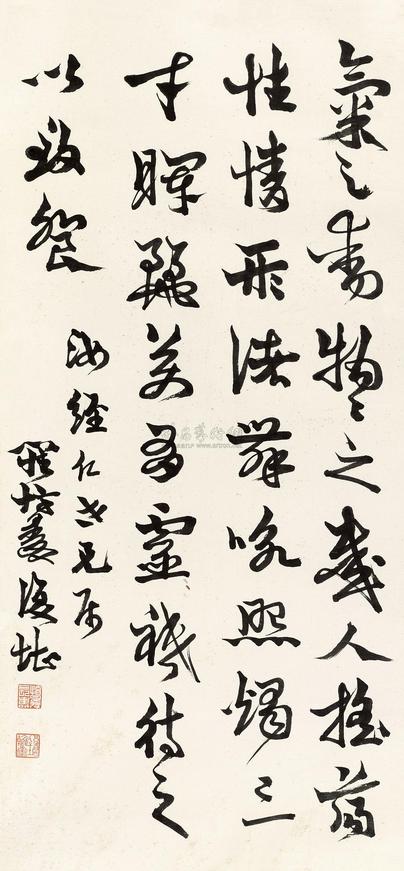 氣之動物〻之感人搖蕩
性情形諸舞詠照燭三
才暉麗萬有靈祇待之
以致饗
汝經仁世兄屬